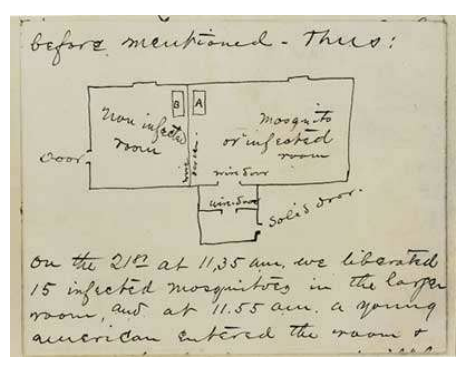 before mentioned - Thus:
B
A
Non infected
room
mosquito
or infected
room
Door
wire
screen
wire door
wire door
Solid door.
On the 21st at 11,35 am, we liberated
15 infected mosquitoes in the larger
room, and at 11.55 am. a young
american entered the room &